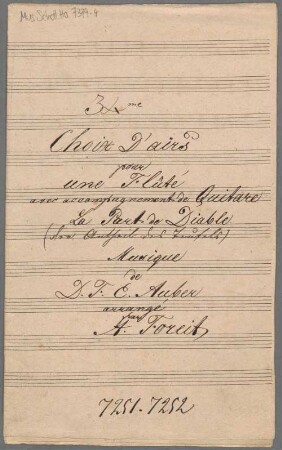 Mus Schott Ha 7379-4
3me
Choix D'airs
pour
une Flûte
avec accompagnement de Guitare
La Part de Diable
(Des Antheil des Teufels)
Musique
de
D. F. E. Auber
arrangé
par
A. Foreit
7251-7252